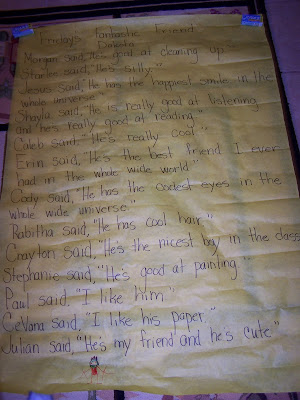 Friday's Fantastic Friend
Dakota
Morgan said, "He's good at cleaning up."
Starlee said, "He's silly."
Jesus said, "He has the happiest smile in the
whole universe."
Shayla said, "He is really good at listening
and he's really good at reading."
Caleb said, "He's really cool."
Erin said, "He's the best friend I ever
had in the whole wide world."
Cody said, "He has the coolest eyes in the
whole wide universe."
Rabitha said, "He has cool hair."
Crayton said, "He's the nicest boy in the class
Stephanie said, "He's good at painting.
Paul said, "I like him."
CeVana said, "I like his paper."
Julian said, "He's my friend and he's cute."